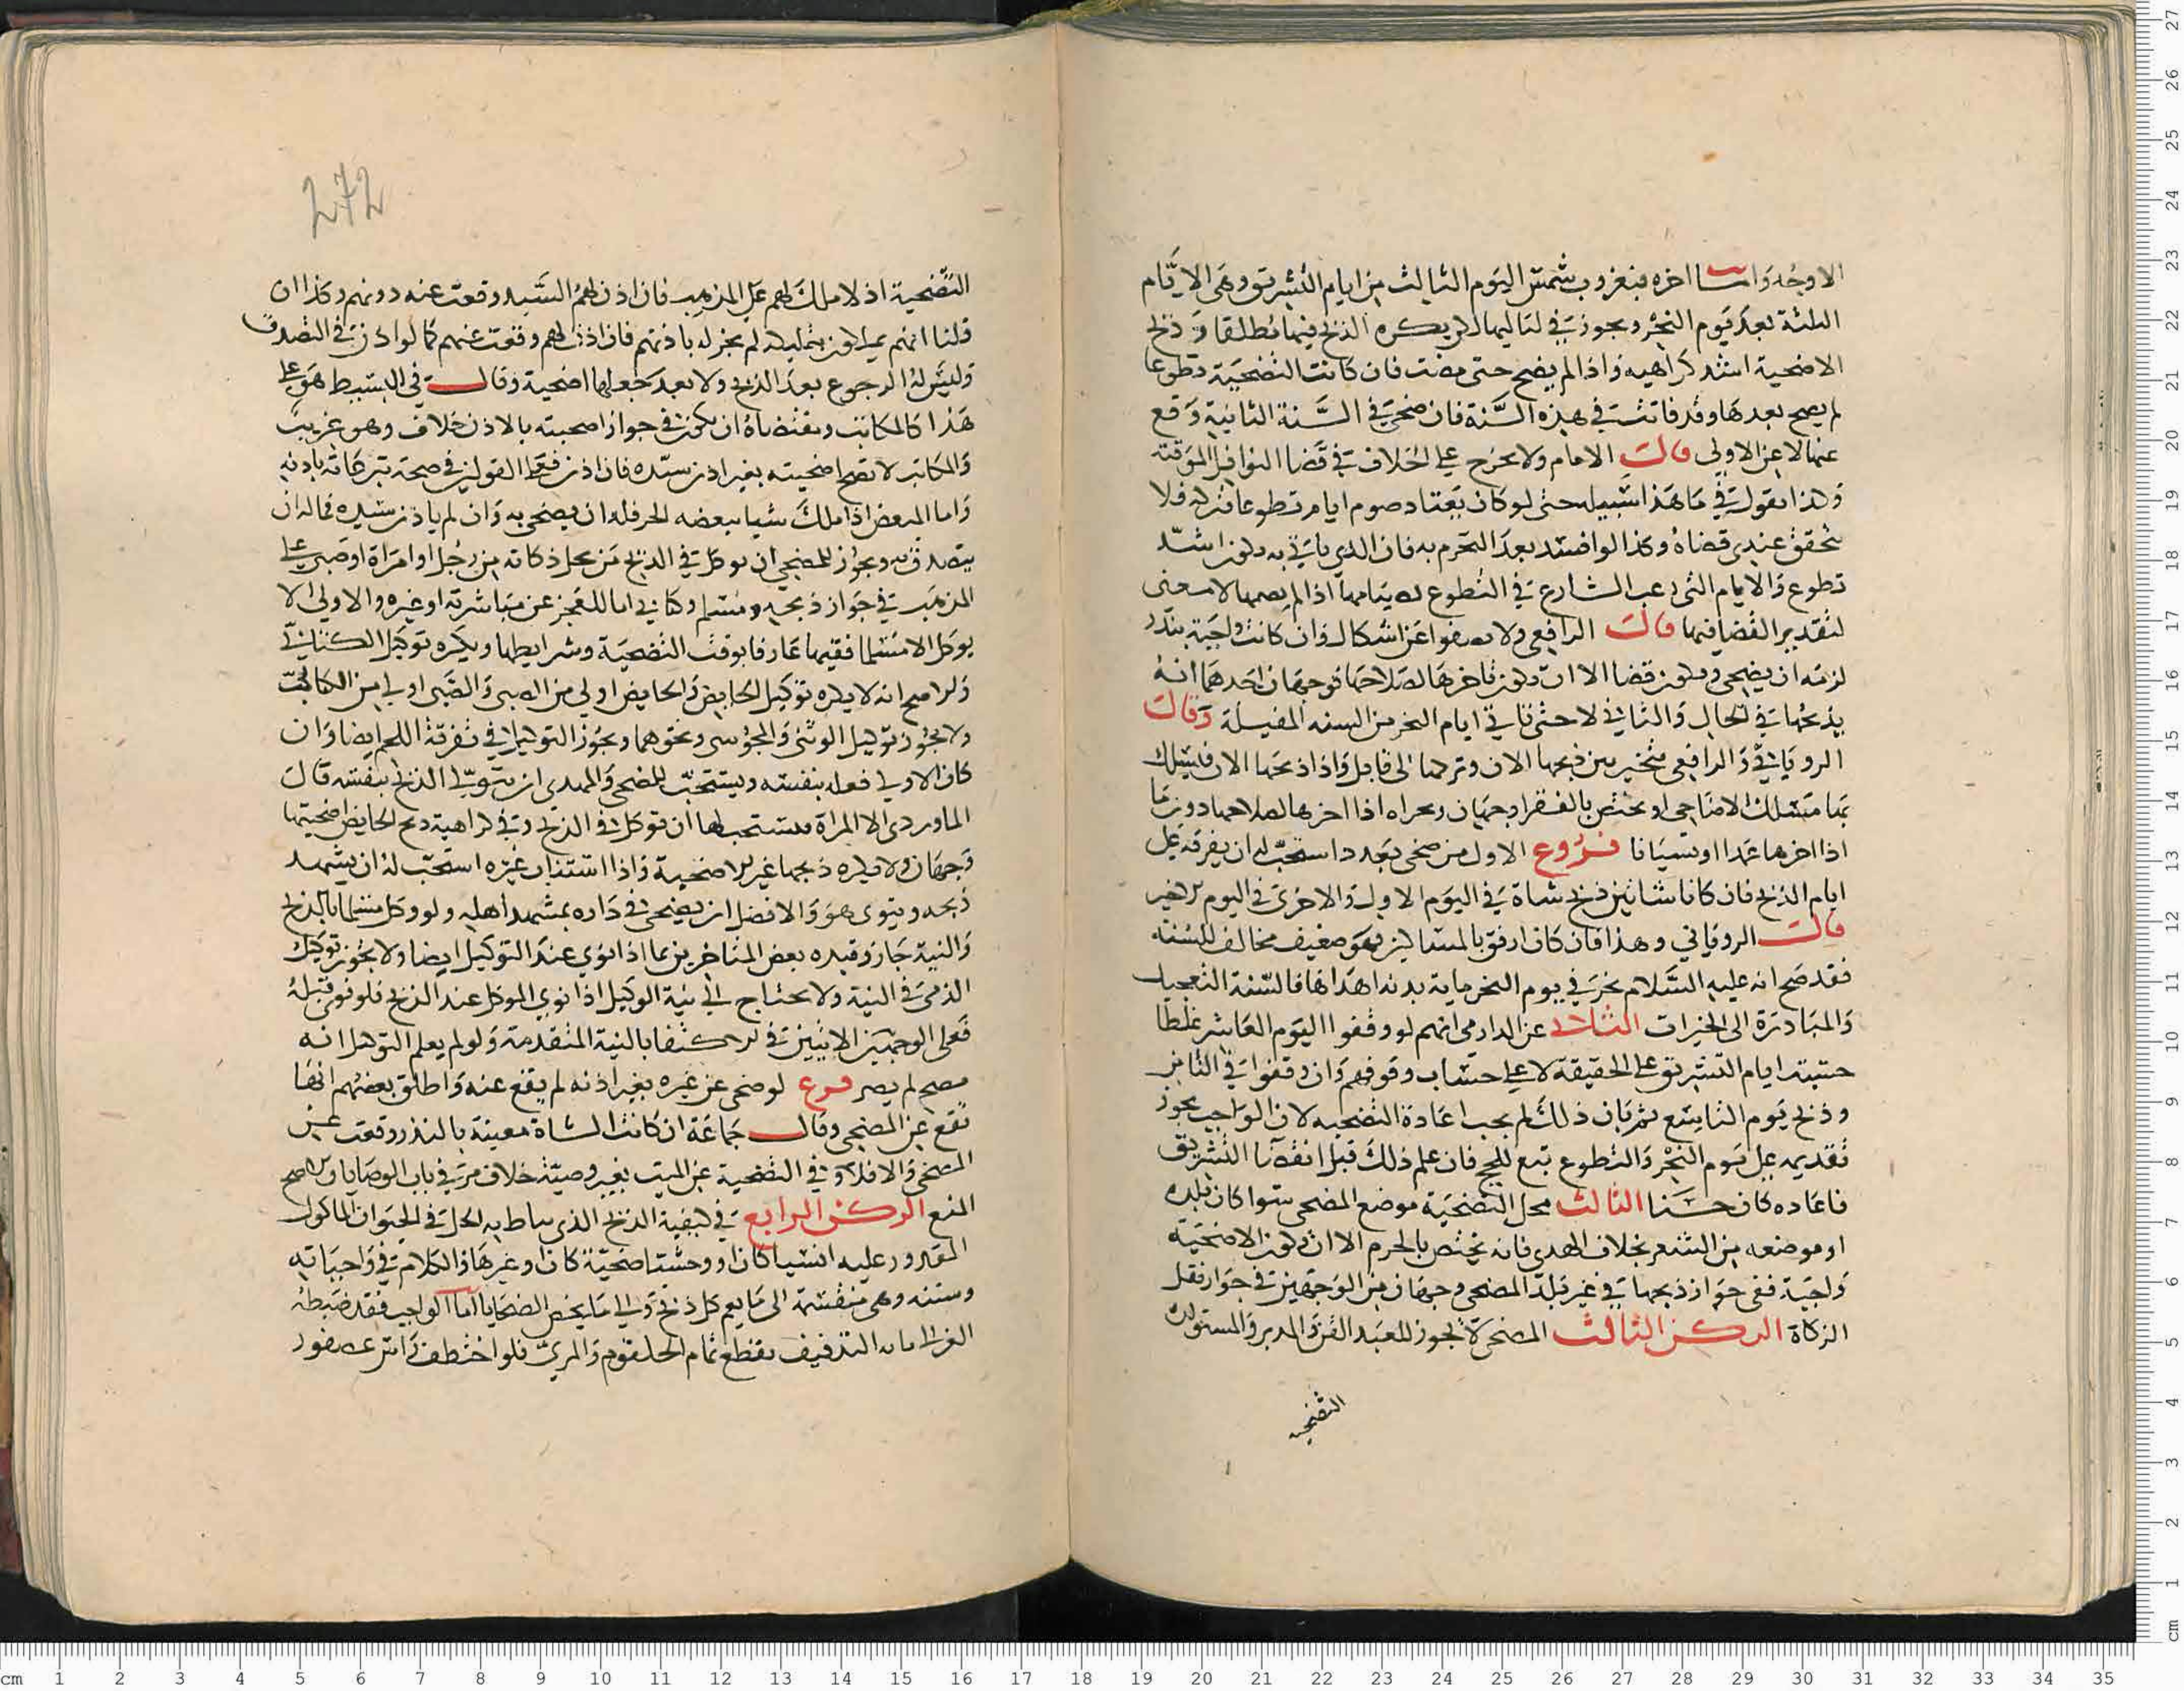 الاوجه واما اخره فبغروب شمس اليوم الثالث من ايام التشريق وهي الايام
الثلثة بعد يوم النحر ويجوز في لياليها لكن يكره الذبح فيها مطلقا وذبح
الاضحية اشد كراهيه واذا لم يضح حتى مضت فان كانت التضحية تطوعا
لم يصح بعدها وقد فاتت في هذه السنة فان ضحى في السنة الثانية وقع
عنها لا عن الاولى قال الامام ولا يخرج على الخلاف في قضا النوافل الموقتة
ولذا نقول في ما هذا سبيله حتى لو كان يعتاد صوم ايام تطوعا فتركه فلا
يتحقق عندي قضاه وكذا لو افسد بعد التحرم به فان الذي ياتي به يكون ابتدا
تطوع والايام التي رغب الشارع في التطوع بصيامها اذا لم يصمها لا معنى
لتقدير القضا فيها قال الرافعي ولا يصفوا عن اشكال وان كانت واجبة بنذر
لزمه ان يضحي ويكون قضا الا ان يكون تاخرها لصلاحها فوجهان احدهما انه
يذبحها في الحال والثاني لا حتى تاتي ايام النحر من السنه المقبلة وقال
الروياني والرافعي يتخير بين ذبحها الان وتركها الى قابل واذا ذبحها الان فيسلك
بها مسلك الاضاحي او يختص بالفقرا وجهان اذا اخرها لصلاحها دون ما
اذا اخرها عمدا او نسيانا فروع الاول من ضحى بعدد استحب له ان يفرقه على
ايام الذبح فان كانا شاتين ذبح شاة في اليوم الاول والاخرى في اليوم الاخير
قال الروياني وهذا فان كان ارفق بالمساكين فهو ضعيف مخالف للسنه
فقد صح انه عليه السلام نحر في يوم النحر ماية بدنه اهداها فالسنة التعجيل
والمبادرة الى الخيرات الثاني عن الدارمي انهم لو وقفوا اليوم العاشر غلطا
حسبت ايام التشريق على الحقيقة لا على حساب وقوفهم وان وقفوا في الثامن
وذبح يوم التاسع ثم بان ذلك لم يجب اعادة التضحيه لان الواجب يجوز
تقديمه على يوم النحر والتطوع تبع للحج فان علم ذلك قبل انقضا التشريق
فاعاده كان حسنا الثالث محل التضحية موضع المضحي سوا كان بلده
او موضعه من السفر بخلاف الهدي فانه يختص بالحرم الا ان تكون الاضحية
واجبة ففي جواز ذبحها في غير بلد المضحي وجهان من الوجهين في جواز نقل
الزكاة الركن الثالث المضحي لا يجوز للعبد القن والمدبر والمستولدة
التضحيه
272
التضحية اذ لا ملك لهم على المذهب فان اذن لهم السيد وقعت عنه دونهم وكذا ان
قلنا انهم يملكون بتمليكه لم يجز له باذنهم فان اذن لهم وقعت عنهم كما لو اذن في التصدق
وليس له الرجوع بعد الذبح ولا بعد جعلها اضحية وقال في البسيط هو على
هذا كالمكاتب ومقتضاه ان يكون في جواز اضحيته بالاذن خلاف وهو غريب
والمكاتب لا تصح اضحيته بغير اذن سيده فان اذن فعلى القولين في صحة تبرعاته باذنه
واما المبعض اذا ملك شيا ببعضه الحر فله ان يضحي به وان لم ياذن سيده كما له ان
يتصدق به ويجوز للمضحي ان يوكل في الذبح من يحل ذكاته من رجل او امراة او صبي على
المذهب في جواز ذبحه ومسلم وكتابي اما للعجز عن مباشرته او غيره والاولى الا
يوكل الا مسلما فقيها عارفا بوقت التضحية وشرايطها ويكره توكيل الكتابي
والاصح انه لا يكره توكيل الحايض والحايض اولى من الصبي والصبي اولى من الكتابي
ولا يجوز توكيل الوثني والمجوسي ونحوهما ويجوز التوكيل في تفرقة اللحم ايضا وان
كان الاولى فعله بنفسه ويستحب للمضحي والمهدي ان يتولى الذبح بنفسه قال
الماوردي الا المراة فيستحب لها ان توكل في الذبح وفي كراهية ذبح الحايض اضحيتها
وجهان ولا يكره ذبحها غير الاضحية واذا استناب غيره استحب له ان يشهد
ذبحه وينوي هو والافضل ان يضحي في داره بمشهد اهله ولو وكل مسلما بالذبح
والنية جاز وقيده بعض المتاخرين بما اذا نوى عند التوكيل ايضا ولا يجوز توكيل
الذمي في النية ولا يحتاج الى نية الوكيل اذا نوى الموكل عند الذبح فلو نوى قبله
فعلى الوجهين الاتيين في الاكتفا بالنية المتقدمة ولو لم يعلم الوكيل انه
مضح لم يضر فرع لو ضحى عن غيره بغير اذنه لم يقع عنه واطلق بعضهم انها
تقع عن المضحي وقال جماعة ان كانت الشاة معينة بالنذر وقعت عن
المضحي والا فلا وفي التضحية عن الميت بغير وصية خلاف مر في باب الوصايا والاصح
المنع الركن الرابع في كيفية الذبح الذي يناط به الحل في الحيوان الماكول
المقدور عليه انسيا كان او وحشيا ضحية كان او غيرها والكلام في واجباته
وسننه وهي منقسمة الى ما يعم كل ذبح والى ما يخص الضحايا اما الواجب فقد ضبطه
الغزالي بانه التذفيف بقطع تمام الحلقوم والمري فلو اختطف راس عصفور